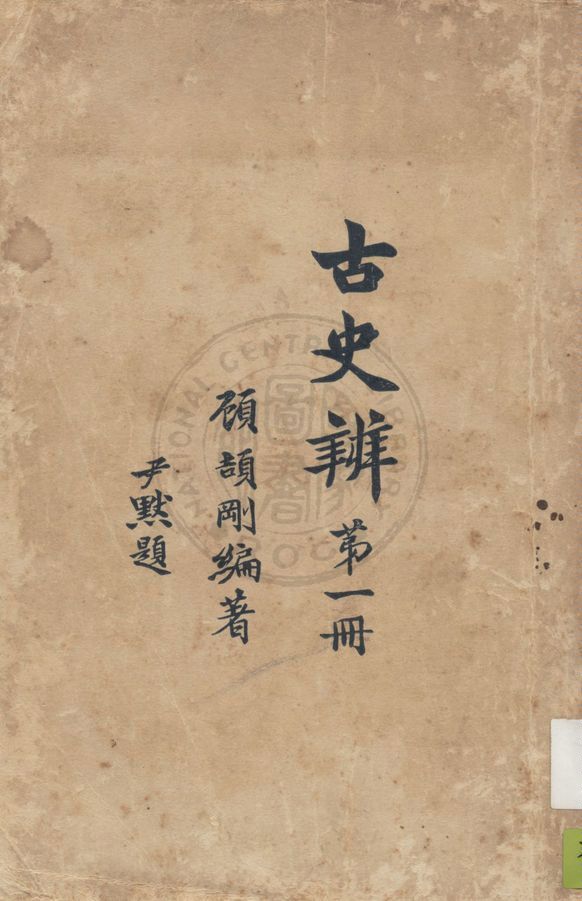 古史辨 第一冊
顧頡剛編著
尹默題
NATIONAL CENTRAL LIBRARY
圖書
ROC